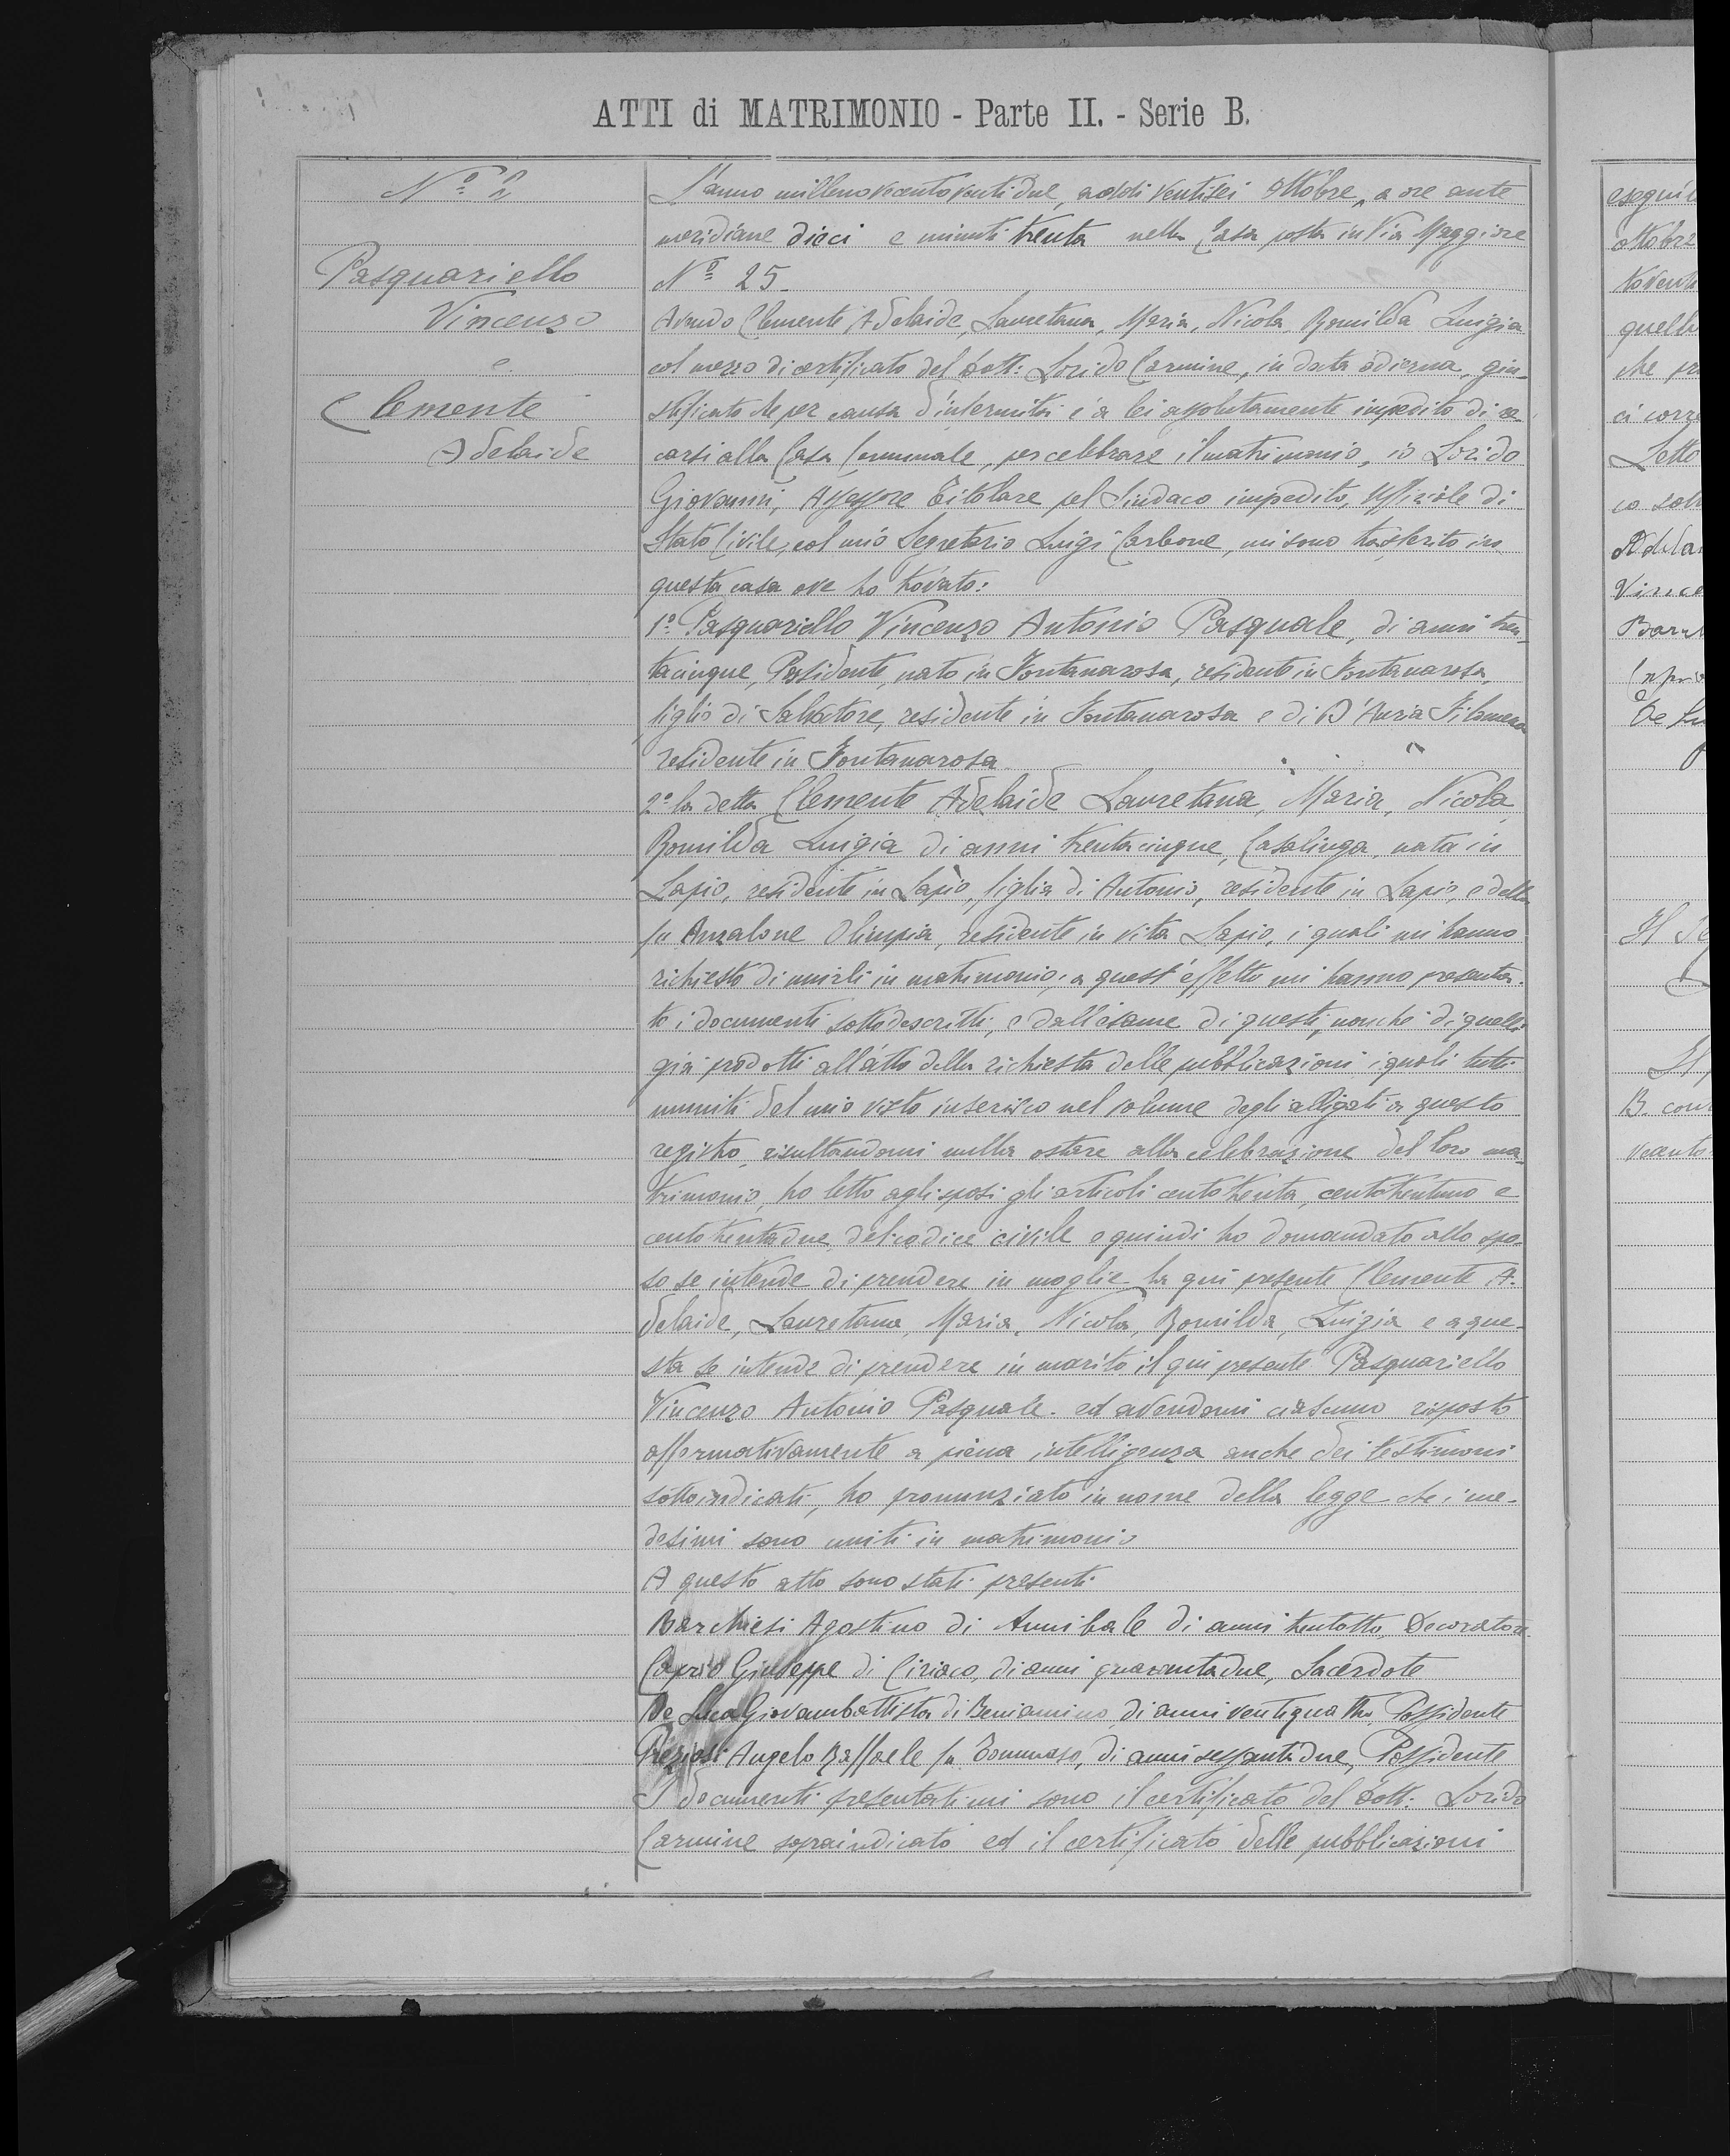 ATTI di MATRIMONIO - Parte II. - Serie B.
Nº 2
Pasquariello
Vincenzo
e
Clemente
Adelaide
L'anno millenovecentoventidue, addì ventisei Ottobre, a ore ante
meridiane dieci e minuti trenta nella Casa posta in Via Maggiore
Nº 25.
Avendo Clemente Adelaide, Lauretana, Maria, Nicola, Romilda Luigia
col mezzo di certificato del Dott: Lorido Carmine, in data odierna, giu-
stificato che per causa d'infermità è a lei assolutamente impedito di re-
carsi alla Casa Comunale, per celebrare il matrimonio, io Lorido
Giovanni, Assessore Titolare pel Sindaco impedito, Uffiziale di
Stato Civile, col mio Segretario Luigi Carbone, mi sono trasferito in
questa casa ove ho trovato:
1º Pasquariello Vincenzo Antonio Pasquale, di anni tren-
tacinque, Possidente, nato in Fontanarosa, residente in Fontanarosa,
figlio di Salvatore, residente in Fontanarosa e di D'Auria Filomena
residente in Fontanarosa
2º la detta Clemente Adelaide Lauretana, Maria, Nicola,
Romilda Luigia di anni trentacinque, Casalinga, nata in
Lapio, residente in Lapio, figlia di Antonio, residente in Lapio, e della
fu Anzalone Olimpia, residente in vita Lapio, i quali mi hanno
richiesto di unirli in matrimonio; a quest'effetto mi hanno presenta-
to i documenti sottodescritti, e dall'esame di questi, nonchè di quelli
già prodotti all'atto della richiesta delle pubblicazioni i quali tutti
muniti del mio visto inserisco nel volume degli alligati a questo
registro, risultandomi nulla ostare alla celebrazione del loro ma-
trimonio, ho letto agli sposi gli articoli centotrenta, centotrentuno e
centotrentadue, del codice civile e quindi ho domandato allo spo-
so se intende di prendere in moglie la qui presente Clemente A-
delaide, Lauretana, Maria, Nicola, Romilda, Luigia e a que-
sta se intende di prendere in marito il qui presente Pasquariello
Vincenzo Antonio Pasquale. ed avendomi ciascuno risposto
affermativamente a piena intelligenza anche dei testimoni
sottoindicati, ho pronunziato in nome della legge che i me-
desimi sono uniti in matrimonio
A questo atto sono stati presenti
Marchiesi Agostino di Annibale di anni trentotto, Decoratore
Caprio Giuseppe di Ciriaco, di anni quarantadue, Sacerdote
De Luca Giovambattista di Beniamino, di anni ventiquattro, Possidente
Preziosi Angelo Raffaele fu Tommaso, di anni sessantadue, Possidente
I documenti presentatimi sono il certificato del Dott: Lorido
Carmine sopraindicato ed il certificato delle pubblicazioni
ottobre
quella
Letto
Il
B.